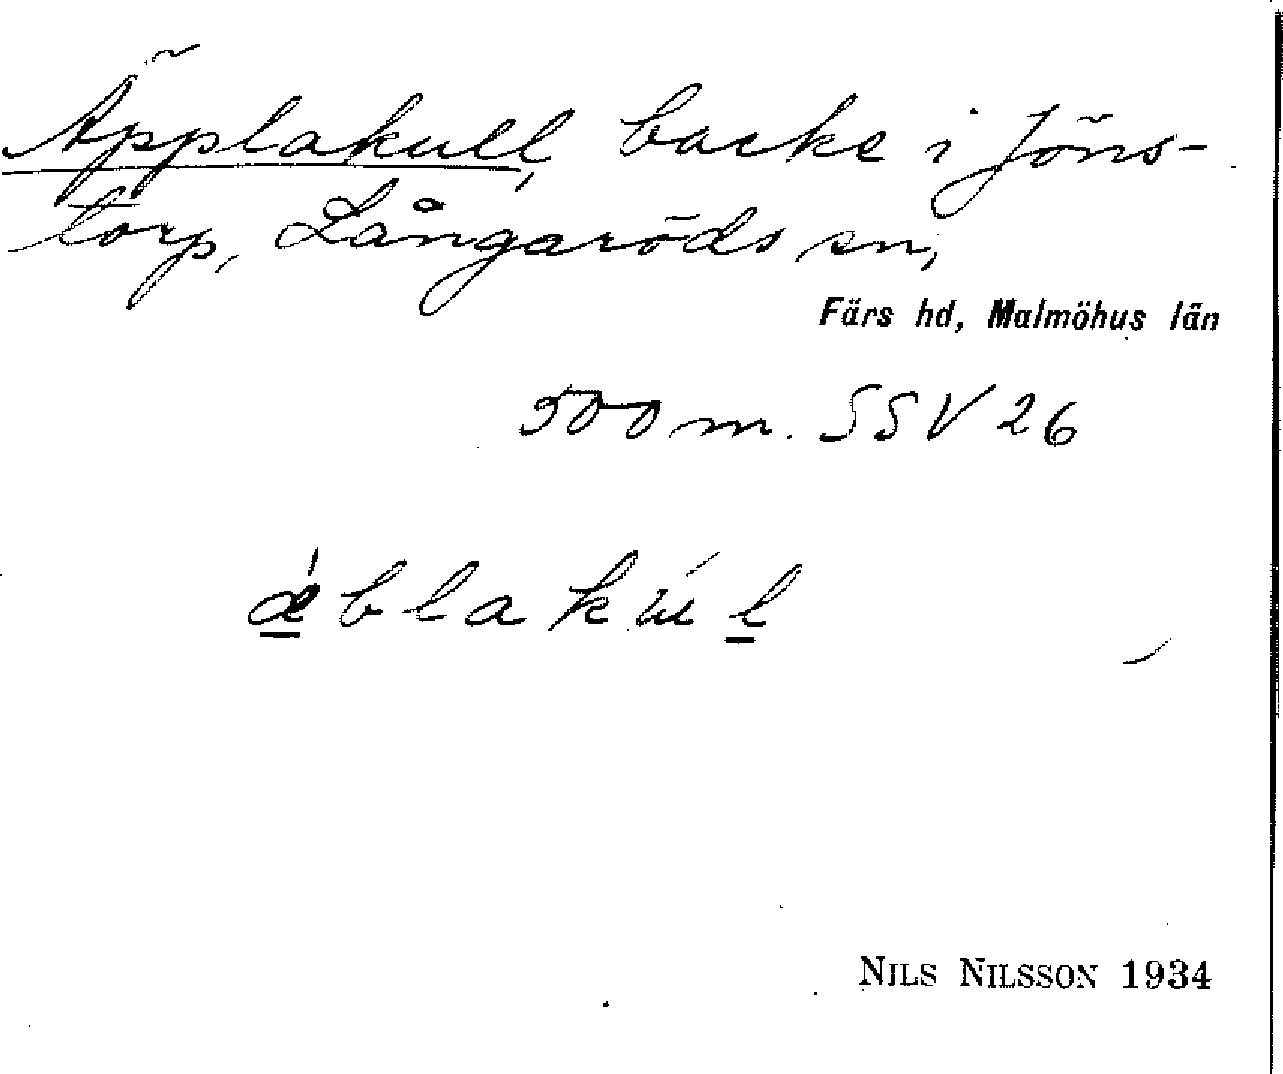 Äpplakull, backe i Jöns-
torp, Långaröds sn,
Färs hd, Malmöhus län
500 m. SSV 26
ǽ̱blakúḻ
NILS NILSSON 1934